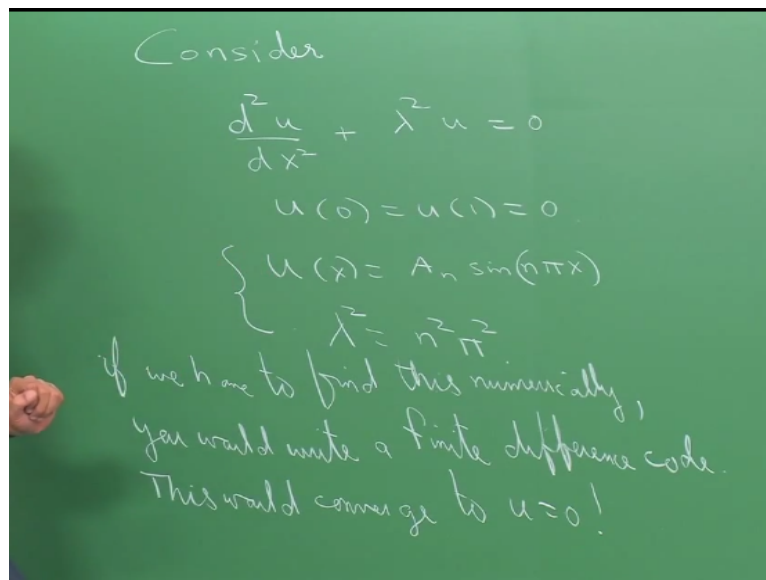 Consider
d²u/dx² + λ²u = 0
u(0) = u(1) = 0
{ u(x) = Aₙ sin(nπx)
λ² = n²π²
if we have to find this numerically,
you would write a finite difference code.
This would converge to u=0!